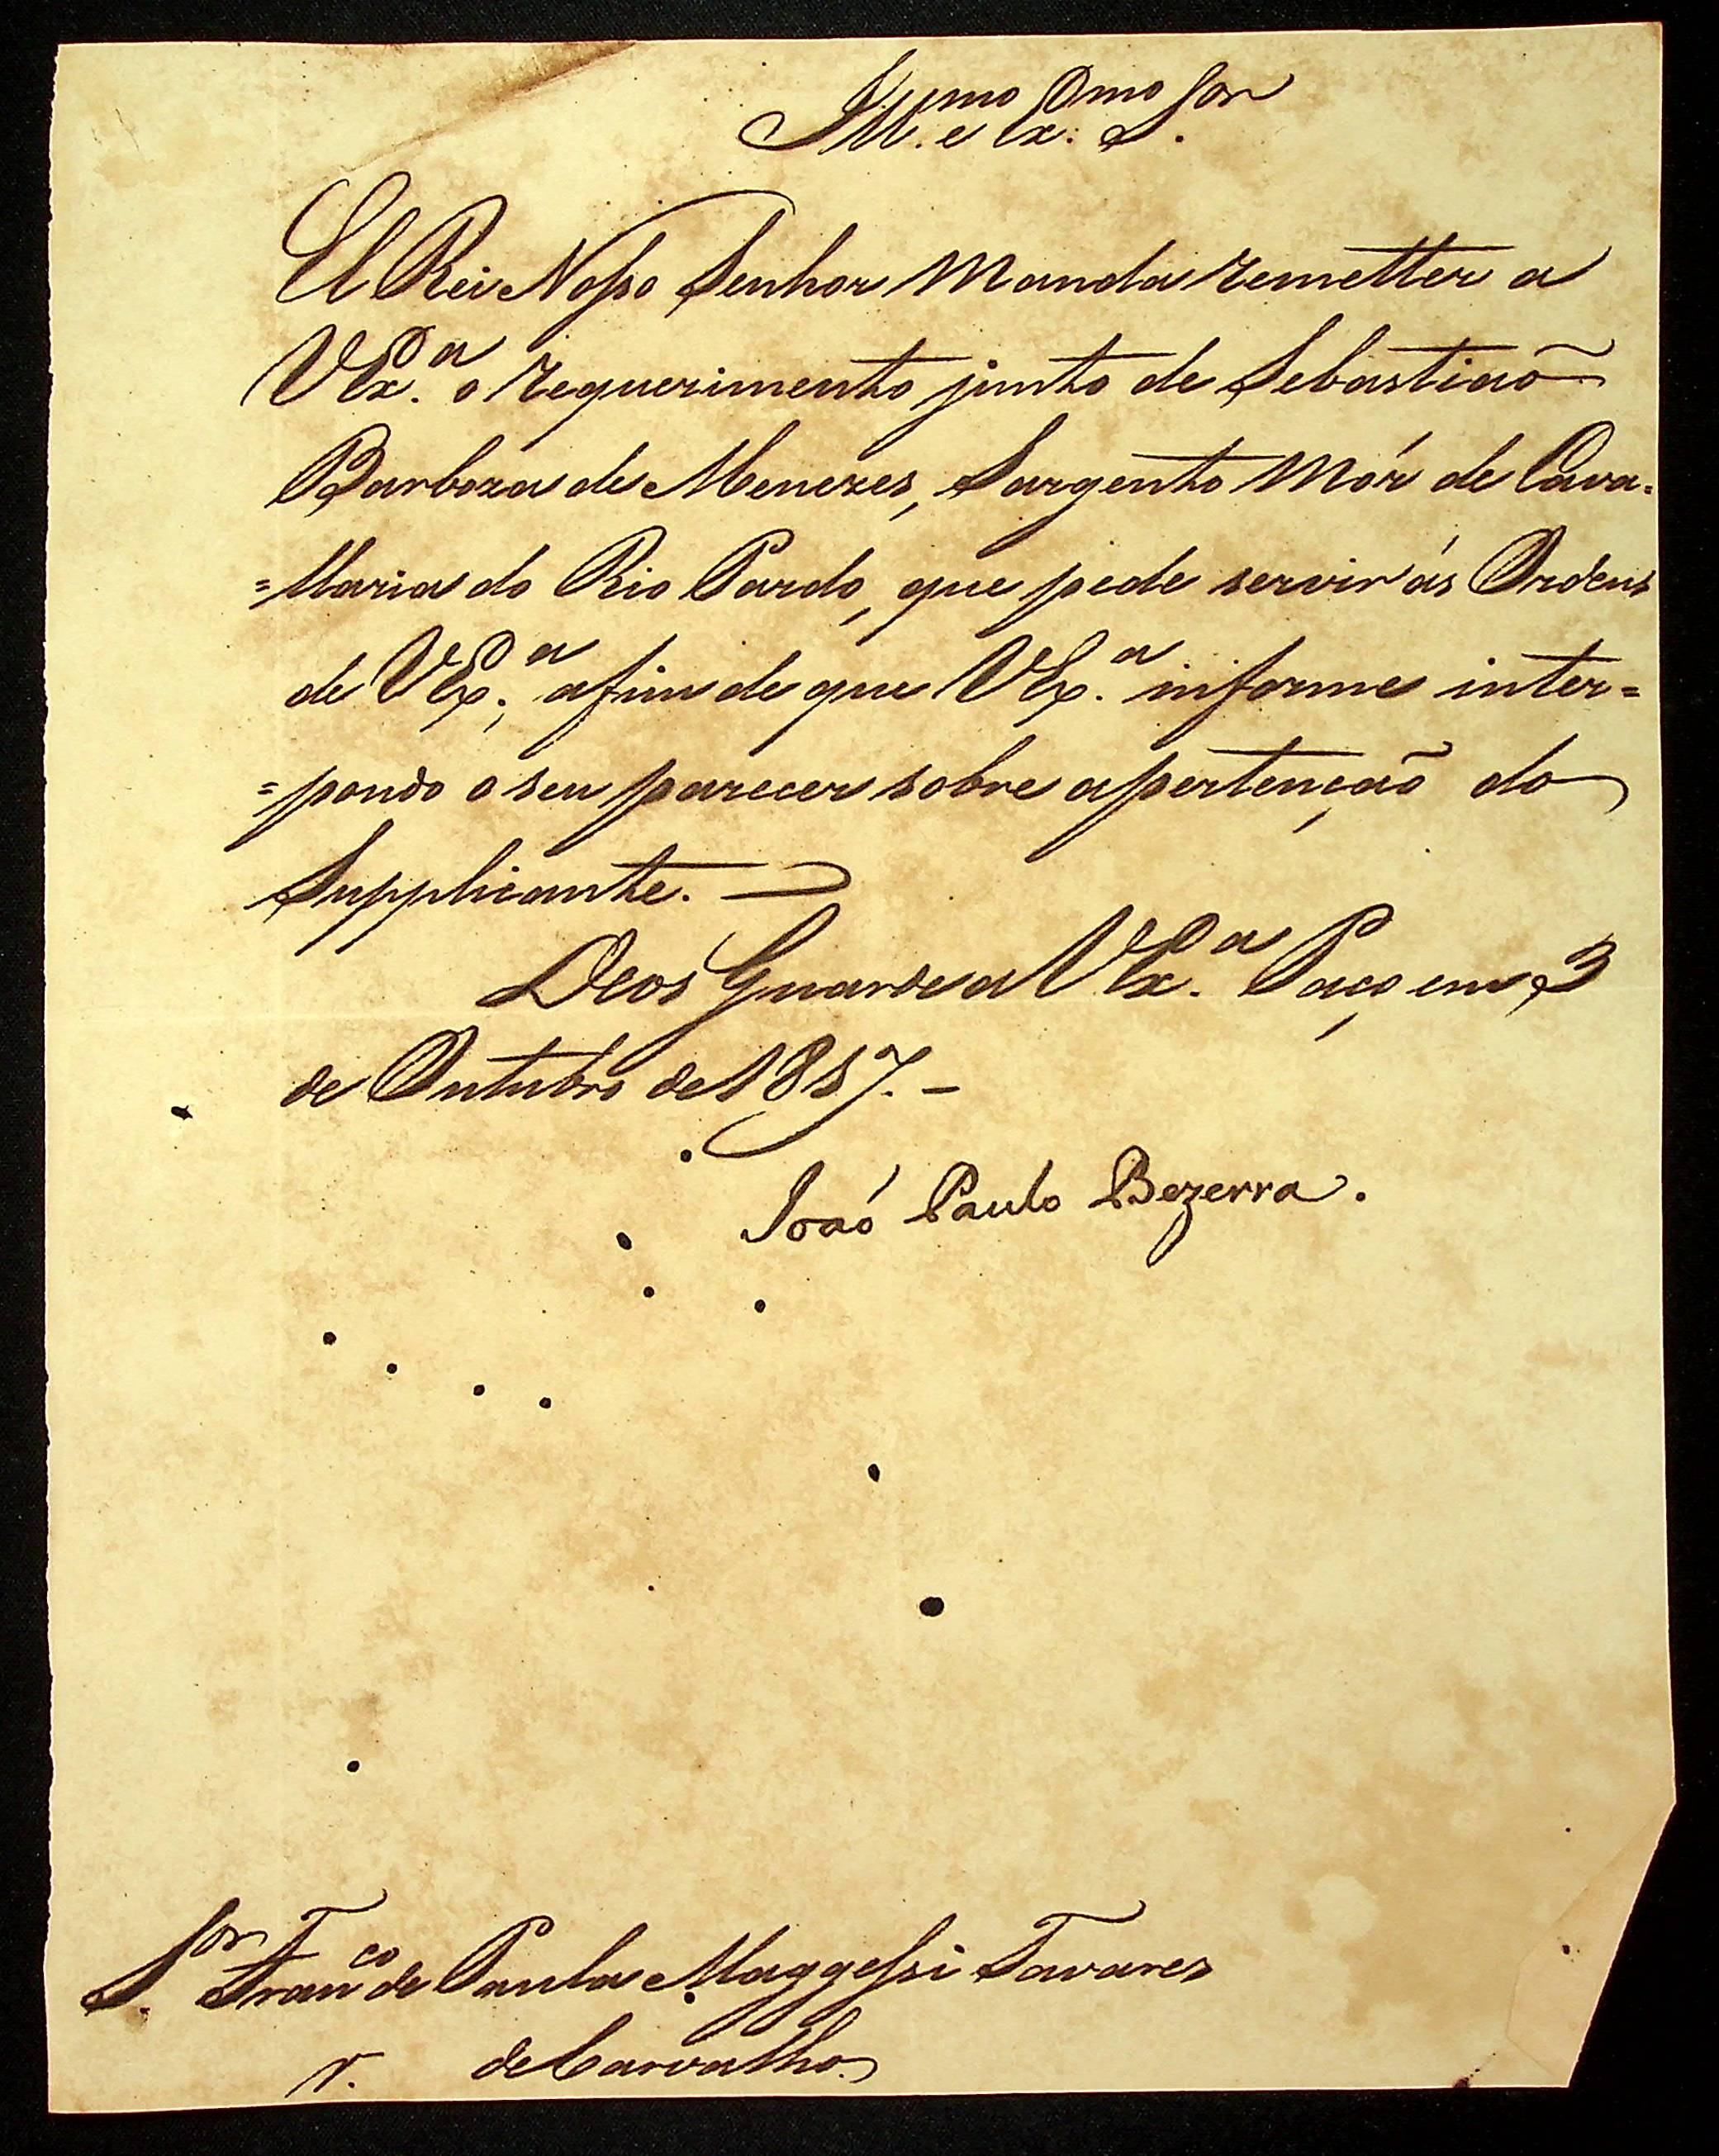 Ill.mo e Ex.mo S.or
El Rei Nosso Senhor Manda remetter a
V Ex.a o requerimento junto de Sebastiaõ
Barboza de Menezes, Sargento Mór de Cava=
=llaria do Rio Pardo, que pede servir ás Ordens
de V Ex.a, afim de que V Ex.a informe inter=
=pondo o seu parecer sobre a pertençaõ do
Supplicante. —
Deos Guarde a V Ex.a Paço em 3
de Outubro de 1817. —
Joaõ Paulo Bezerra.
S.or Fran.co de Paula Maggessi Tavares
de Carvalho.